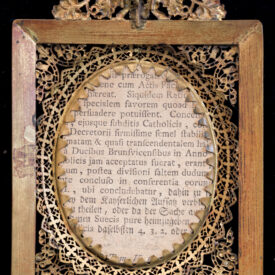 prærogat
ene cum Actis Pac
hæreat. Siquidem Rati
specialem favorem quoad
persuadere potuissent. Conce
ejusque subditis Catholicis, e
Decretorii firmissime semel stabili
matam & quasi transcendentalem
al Ducibus Brunsvicensibus in Anno
olicis jam acceptatus fuerat, erant
um, postea divisioni saltem duduu
te concluso in conferentia eorum
I., ubi concludebatur, dahin
dem Kayserlichen Ausso verb
theilen, oder da der Sache
Suecis pure
daselbsten 4. 3. 2. oder